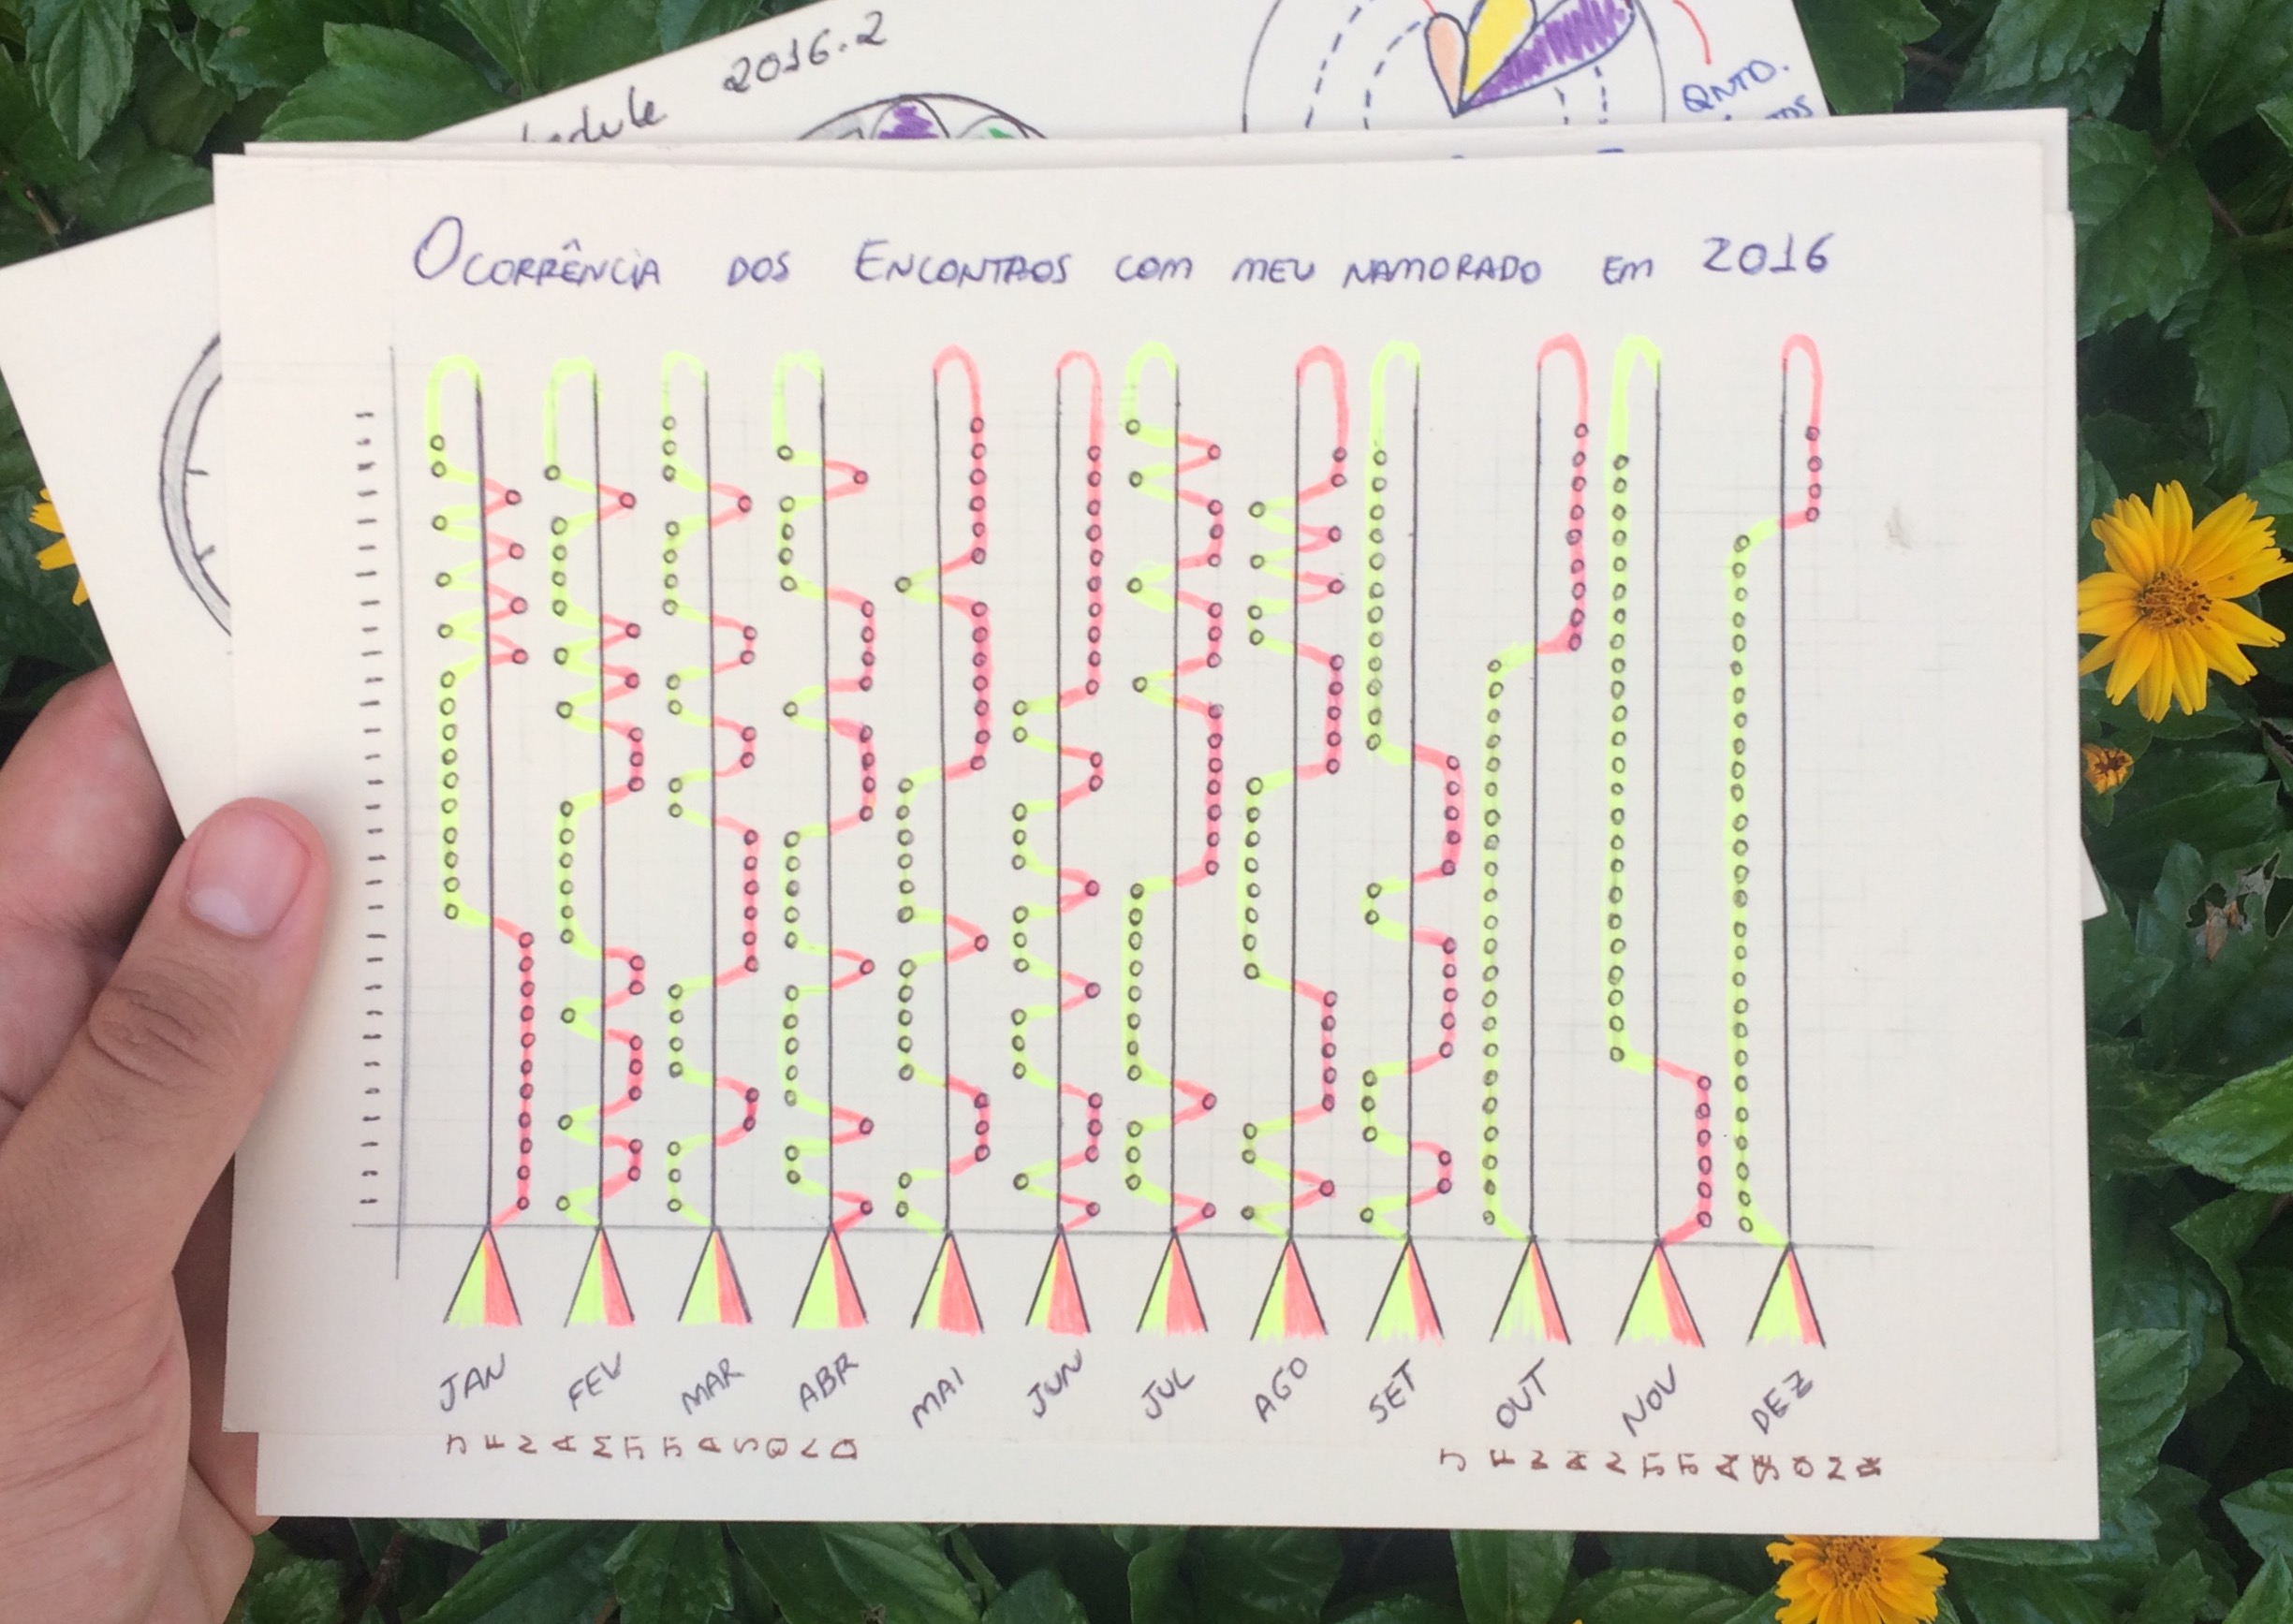 2016.2
QNTD.
OCORRÊNCIA DOS ENCONTROS COM MEU NAMORADO EM 2016
JAN FEV MAR ABR MAI JUN JUL AGO SET OUT NOV DEZ
J F M A M J J A S O N D
J F M A M J J A S O N D